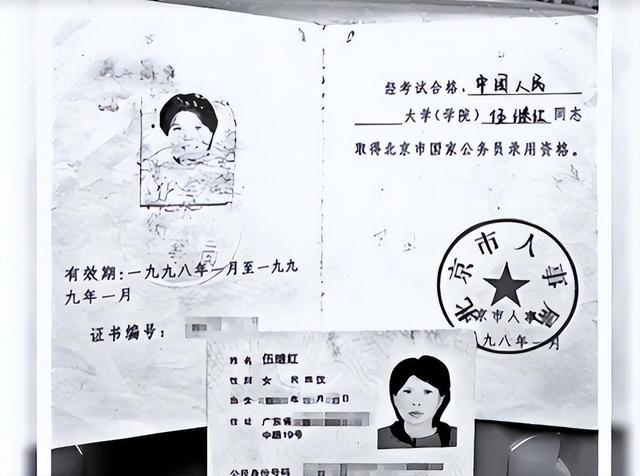 经考试合格，中国人民
大学(学院)伍继红同志
取得北京市国家公务员录用资格。
有效期：一九九八年一月至一九九
九年一月
证书编号：
北京市人事局
京市人事
九八年一月
姓名 伍继红
性别 女 民族汉
年 月 日
住址 广东省
中路19号
公民身份号码